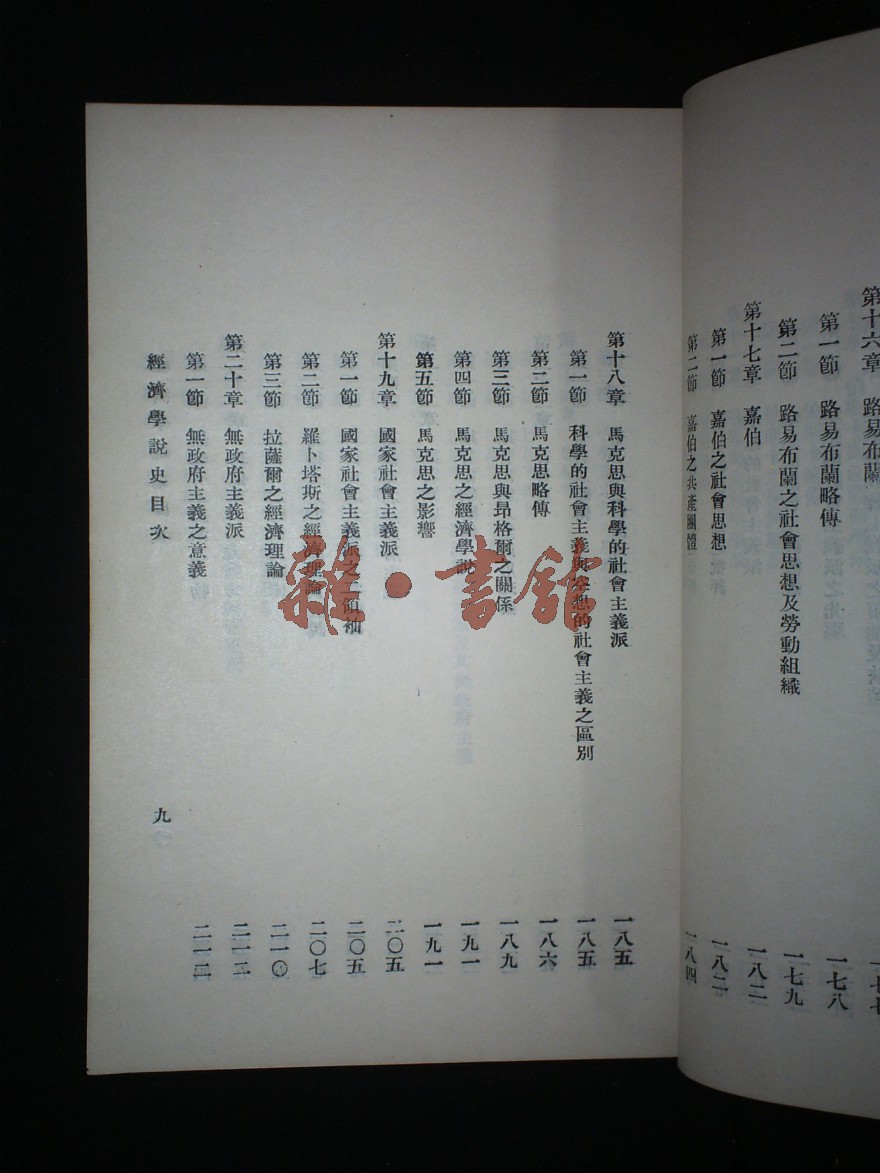 第十六章　路易布蘭　一七七
第一節　路易布蘭略傳　一七八
第二節　路易布蘭之社會思想及勞動組織　一七九
第十七章　嘉伯　一八二
第一節　嘉伯之社會思想　一八二
第二節　嘉伯之共產團體　一八四
第十八章　馬克思與科學的社會主義派　一八五
第一節　科學的社會主義與空想的社會主義之區別　一八五
第二節　馬克思略傳　一八六
第三節　馬克思與昂格爾之關係　一八九
第四節　馬克思之經濟學說　一九一
第五節　馬克思之影響　一九一
第十九章　國家社會主義派　二〇五
第一節　國家社會主義派之二領袖　二〇五
第二節　羅卜塔斯之經濟理論　二〇七
第三節　拉薩爾之經濟理論　二一〇
第二十章　無政府主義派　二一二
第一節　無政府主義之意義　二一二
經濟學說史目次　九
雜·書館